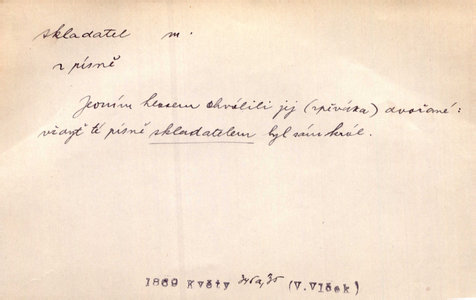 skladatel m.
z písně
Jedním hlasem chválili jej (zpěváka) dvořané:
vždyť té písně skladatelem byl sám král.
1869 Květy (V.Vlček)